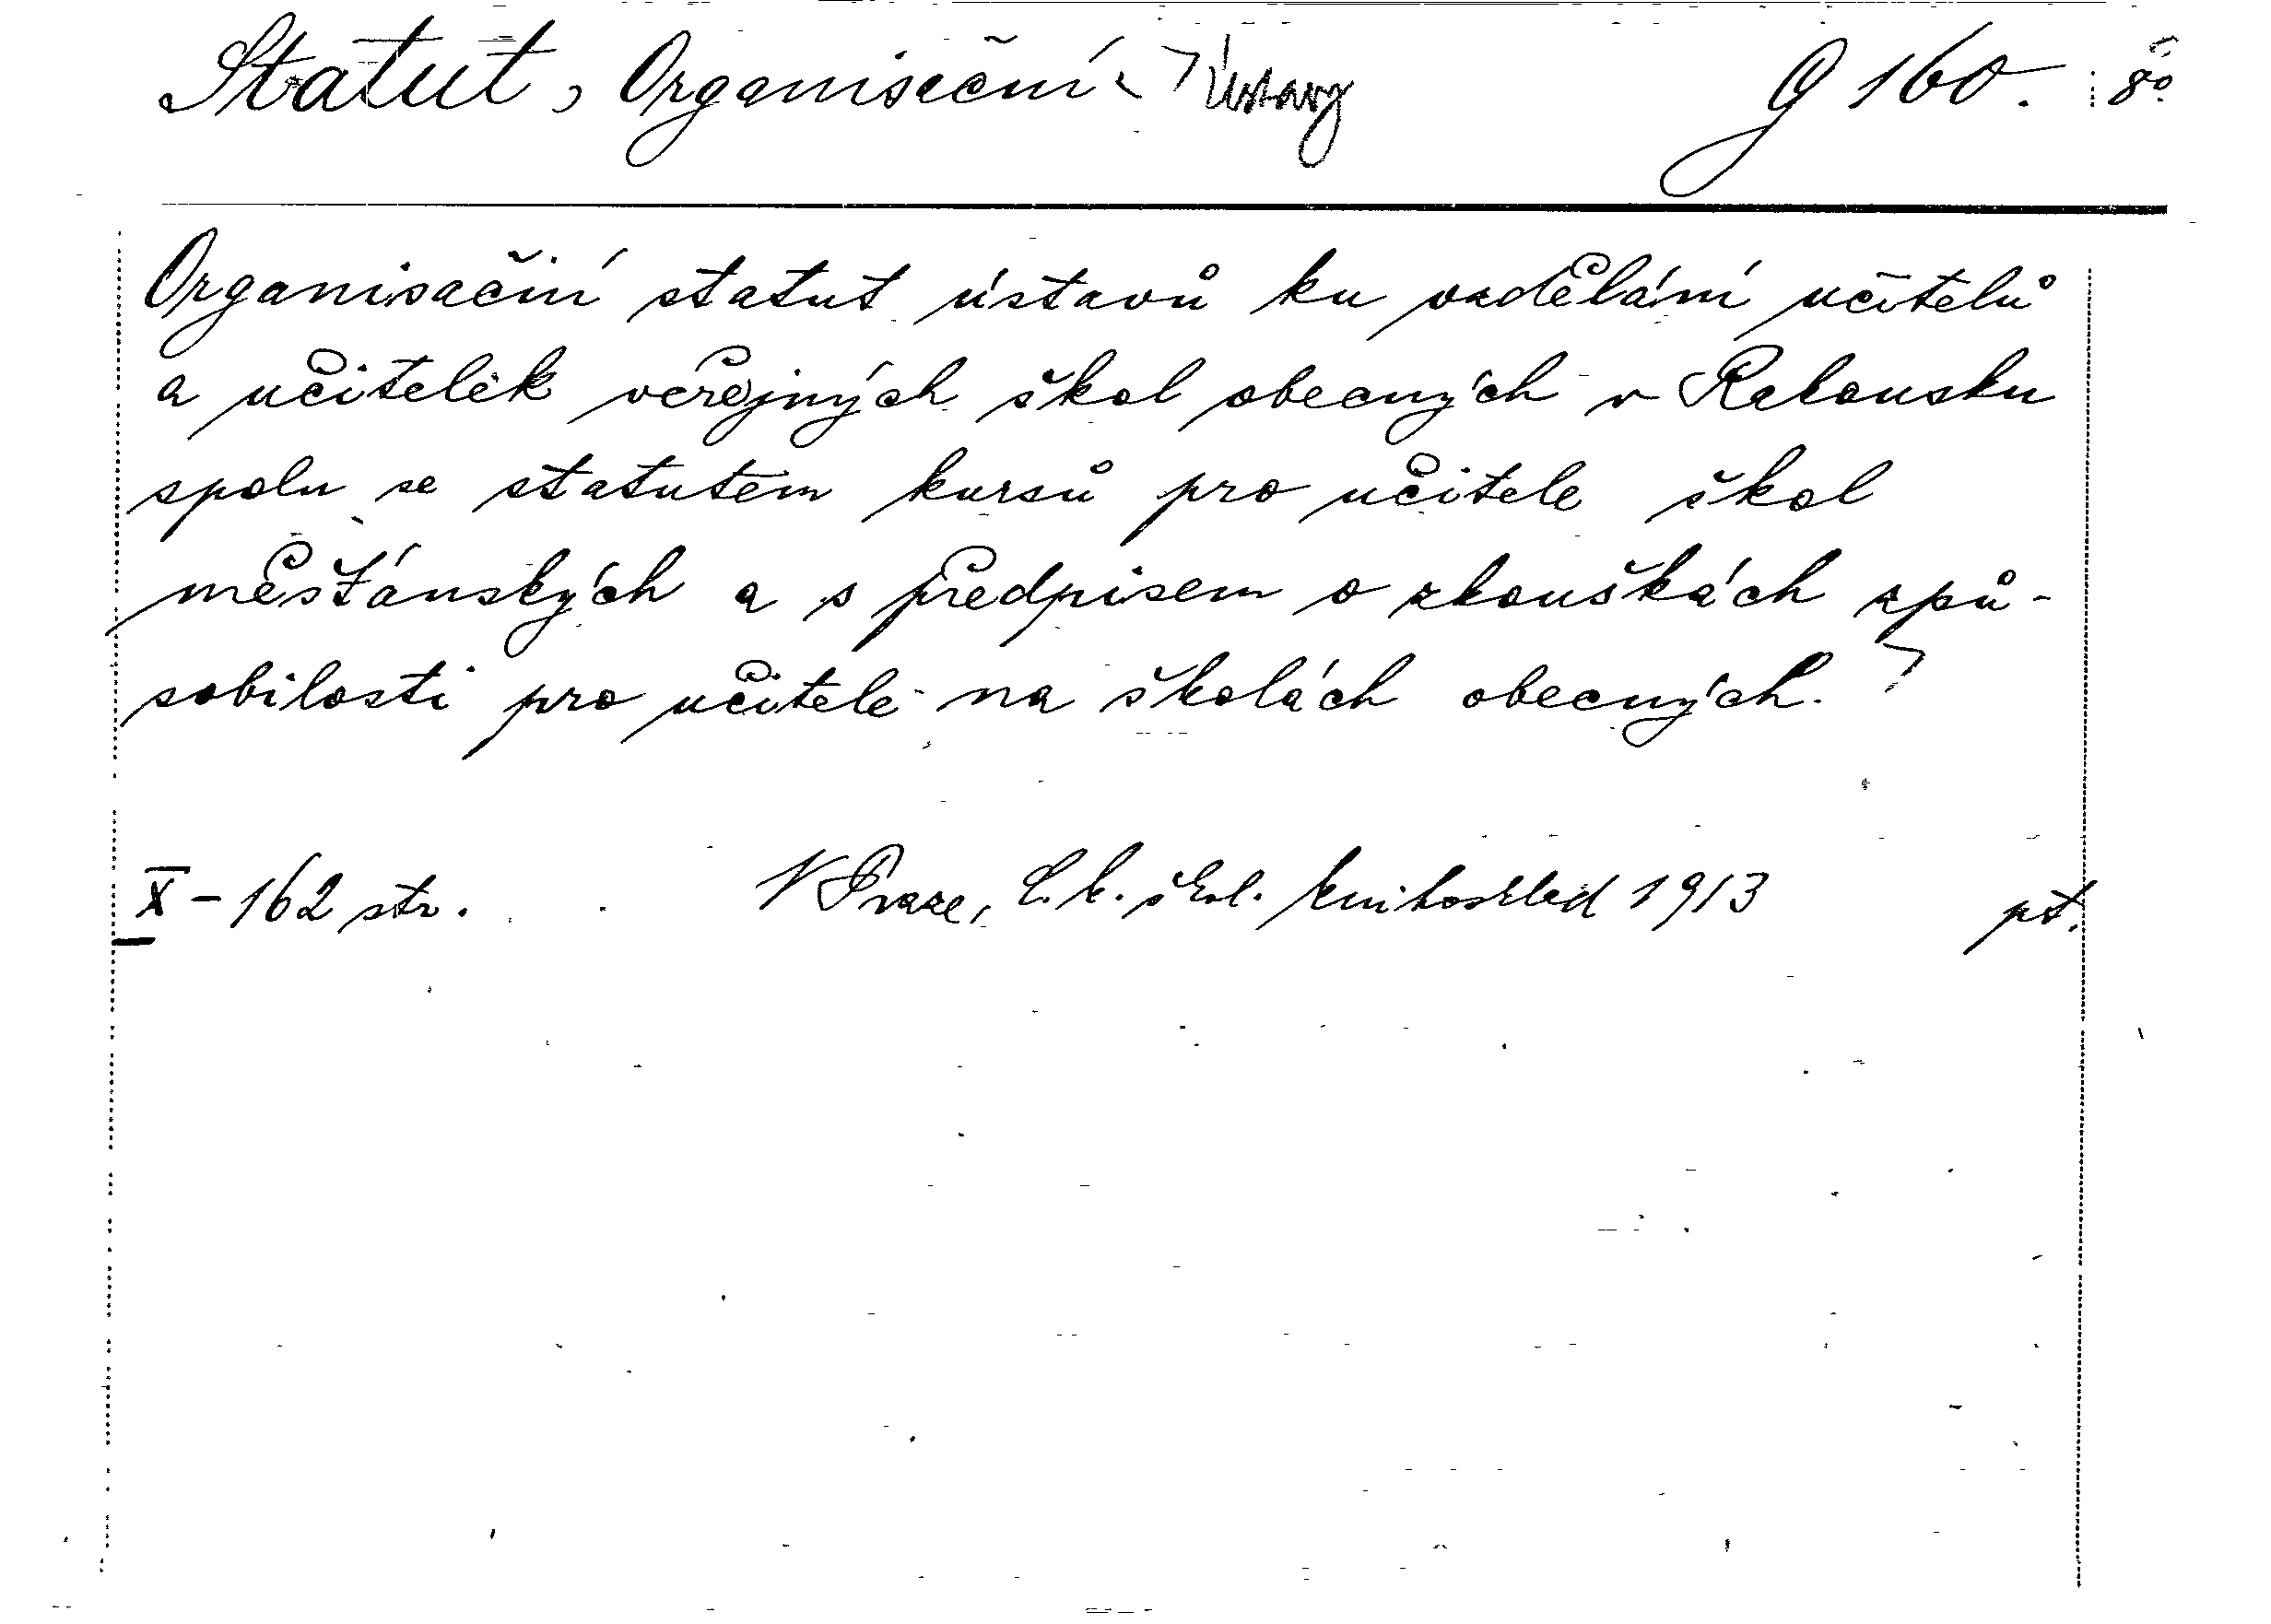 Statut, Organisační Ústavy G 160. 8°
Organisační statut ústavů ku vzdělání učitelů
a učitelek veřejných škol obecných v Rakousku
spolu se statutem kursů pro učitele škol
měšťánských a s předpisem o zkouškách způ-
sobilosti pro učitele na školách obecných.
X-162 str. V Praze, c. k. škol. knihosklad 1913 pt.